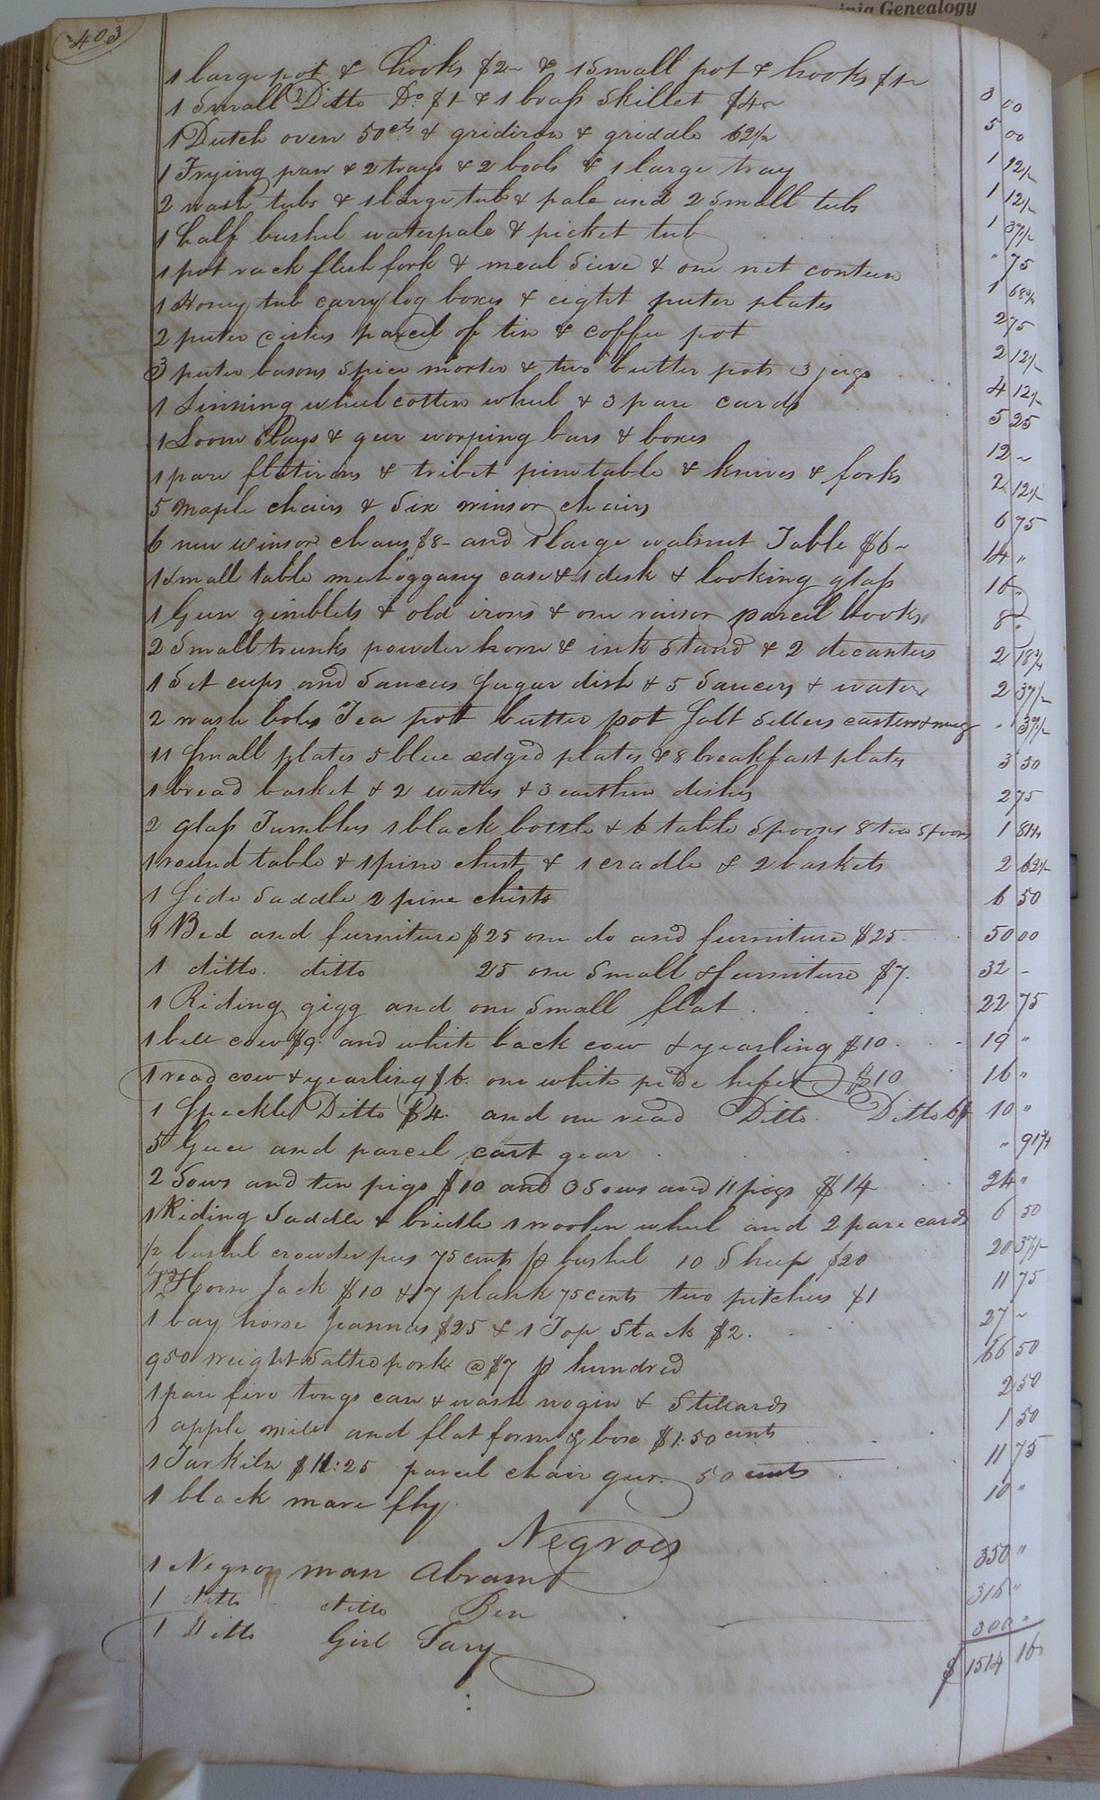 inia Genealogy
403
1 large pot & hooks $2~ & 1 Small pot & hooks $1~ 3 00
1 Small Ditto Do $1 & 1 brass Skillet $4~ 5 00
1 Dutch oven 50cts & gridiron & griddle 62½ 1 12½
1 Frying pan & 2 trays & 2 bools & 1 large tray 1 12½
2 wash tubs & 1 large tub & pale and 2 Small tubs 1 37½
1 half bushel waterpale & picket tub " 75
1 pot rack flesh fork & meal Sieve & one net conteen 1 68¾
1 Honey tub carry log boxes & eight puter plates 2 75
2 puter dishes parcel of tin & coffee pot 2 12½
3 puter basons Spice morter & two butter pots 3 jugs 4 12½
1 Linning wheel cotton wheel & 3 pare cards 5 25
1 Loom Slays & gear worping bars & boxes 12 ~
1 pare flatirons & tribet pine table & knives & forks 2 12½
5 Maple chairs & Six winsor chairs 6 75
6 new winsor chairs $8- and 1 large walnut Table $6~ 14 "
1 Small table mehoggany case & 1 desk & looking glass 16 "
1 Gun gimblets & old irons & one raisor parcel books 8 "
2 Small trunks powder horn & ink Stand & 2 decanters 2 18¾
1 Set cups and Saucers Sugar dish & 5 Saucers & water 2 37½
2 wash boles Tea pott butter pot Salt Sellers casters & mug " 37½
11 Small plates 5 blue edged plates & 8 breakfast plates 3 30
1 bread basket & 2 waters & 3 earthen dishes 2 75
2 glass Tumblers 1 black bottle & 6 table Spoons 8 tea Spoons 1 81¼
1 round table & 1 pine chest & 1 cradle & 2 baskets 2 62½
1 Side Saddle 2 pine chists 6 50
1 Bed and furniture $25 one do and furniture $25 50 00
1 ditto. ditto 25 one Small & furniture $7. 32 -
1 Riding gigg and one Small flat 22 75
1 bell cow $9. and white back cow & yearling $10 19 "
1 read cow & yearling $6. one white pide hefer $10 16 "
1 Speckle Ditto $4. and one read Ditto. Ditto $6 10 "
5 Geese and parcel cart gear " 91¼
2 Sows and ten pigs $10 and 3 Sows and 11 pigs $14 24 "
1 Riding Saddle & bridle 1 woolen wheel and 2 pare cards 6 50
½ bushel crowder peas 75 cents p bushel 10 Sheep $20 20 37½
1 Horse Jack $10 & 7 plank 75 cents two pitchers $1 11 75
1 bay horse Jeannus $25 & 1 Top Stack $2. 27 ~
950 weight Salted pork @ $7 p hundred 66 50
1 pare fire tongs can & wash nogin & Stillards 2 50
1 apple mill and flat form & box $1.50 cents 1 50
1 Tarkiln $11:25 parcel chair gear. 50 cents 11 75
1 black mare fly. 10 "
Negroes
1 Negroy man Abram 350 "
1 ditto ditto Ben 316 "
1 Ditto Girl Tary 300 "
$ 1514 16